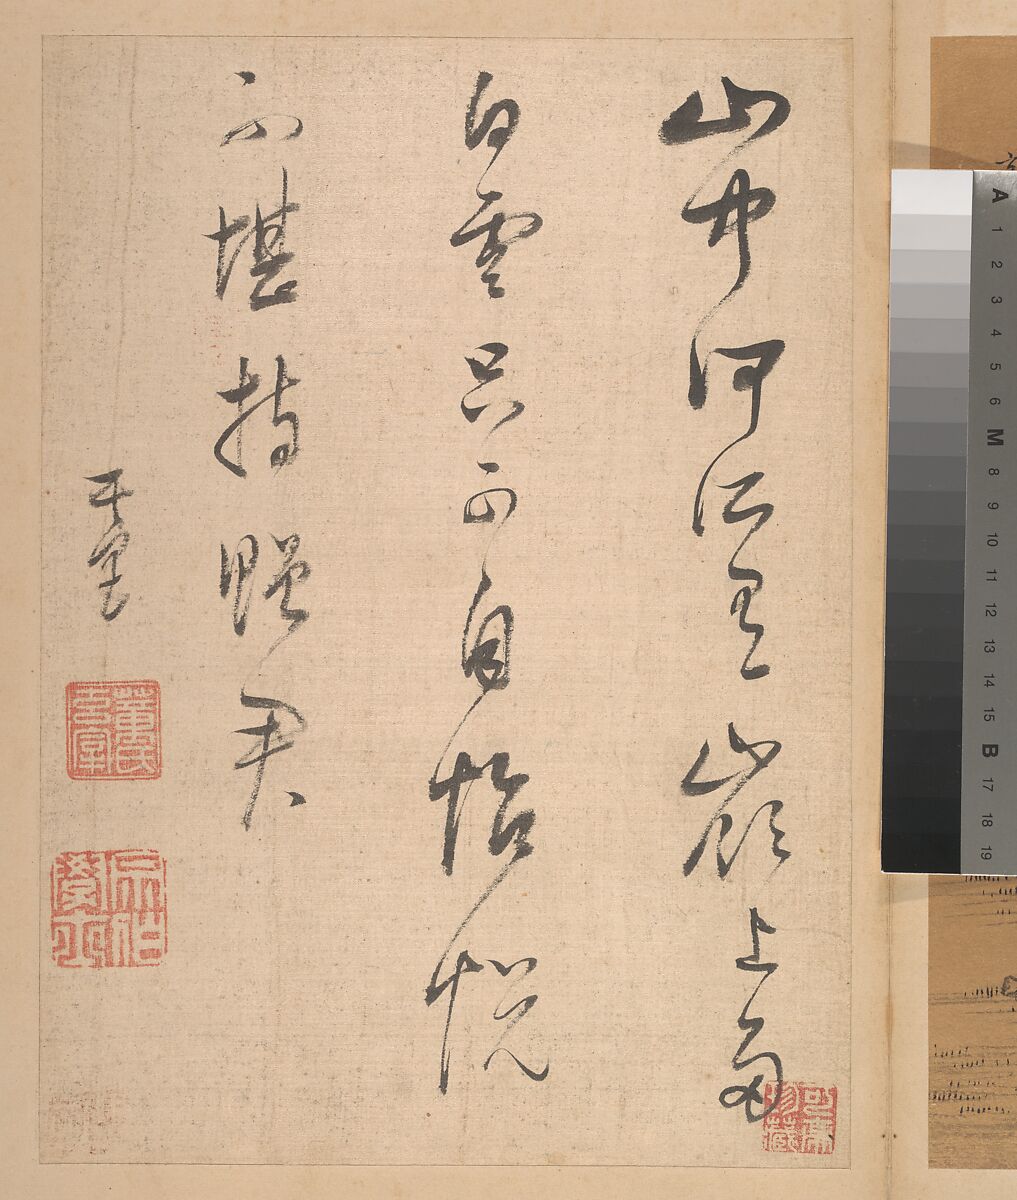 山中何所有嶺上多
白雲只可自怡悅
不堪持贈君
董氏
A 1 2 3 4 5 6 M 8 9 10 11 12 13 14 15 B 17 18 19